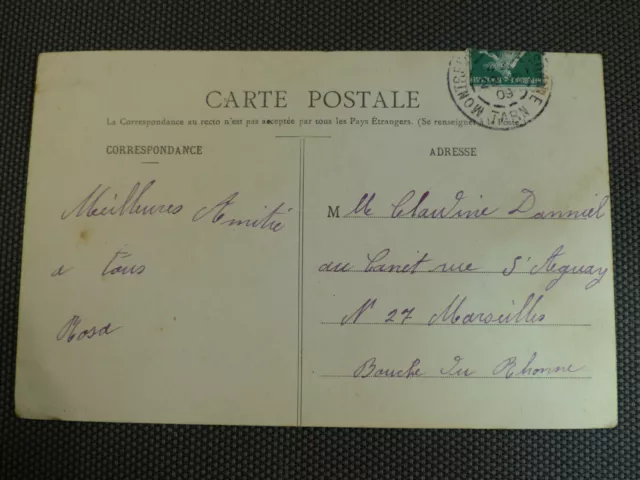 CARTE POSTALE
La Correspondance au recto n'est pas acceptée par tous les Pays Étrangers. (Se renseigner à la Poste)
CORRESPONDANCE
Meilleures Amitié
a tous
Rosa
ADRESSE
Mlle Claudine Danniel
au Canet rue d'Aguay
N 27 Marseilles
Bouche du Rhonne
09
TARN